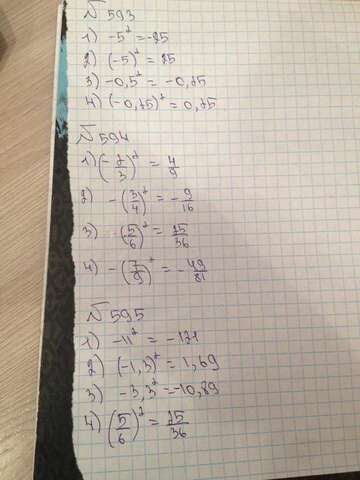 № 593
1) -5² = -25
2) (-5)² = 25
3) -0,5² = -0,25
4) (-0,25)² = 0,25
№ 594
1) (-2/3)² = 4/9
2) -(3/4)² = -9/16
3) -(5/6)² = 25/36
4) -(7/9)² = -49/81
№ 595
1) -11² = -121
2) (-1,3)² = 1,69
3) -3,3² = -10,89
4) (5/6)² = 25/36